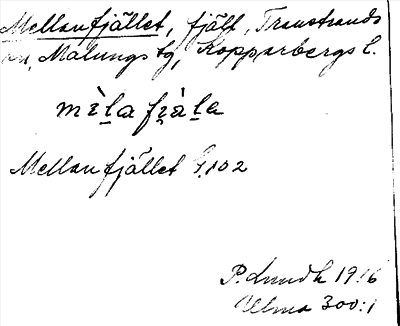 Mellanfjället, fjäll, Transtrands
sn, Malungs tg, Kopparbergs l.
mɛ̀l̠a fi̯àl̠a
Mellanfjället G.102
P. Lundh 1916
Ulma 300:1